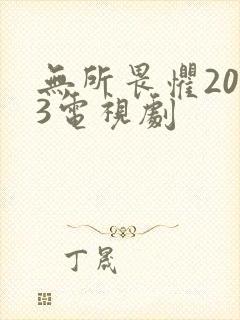 無所畏懼20
3電視劇
丁晟